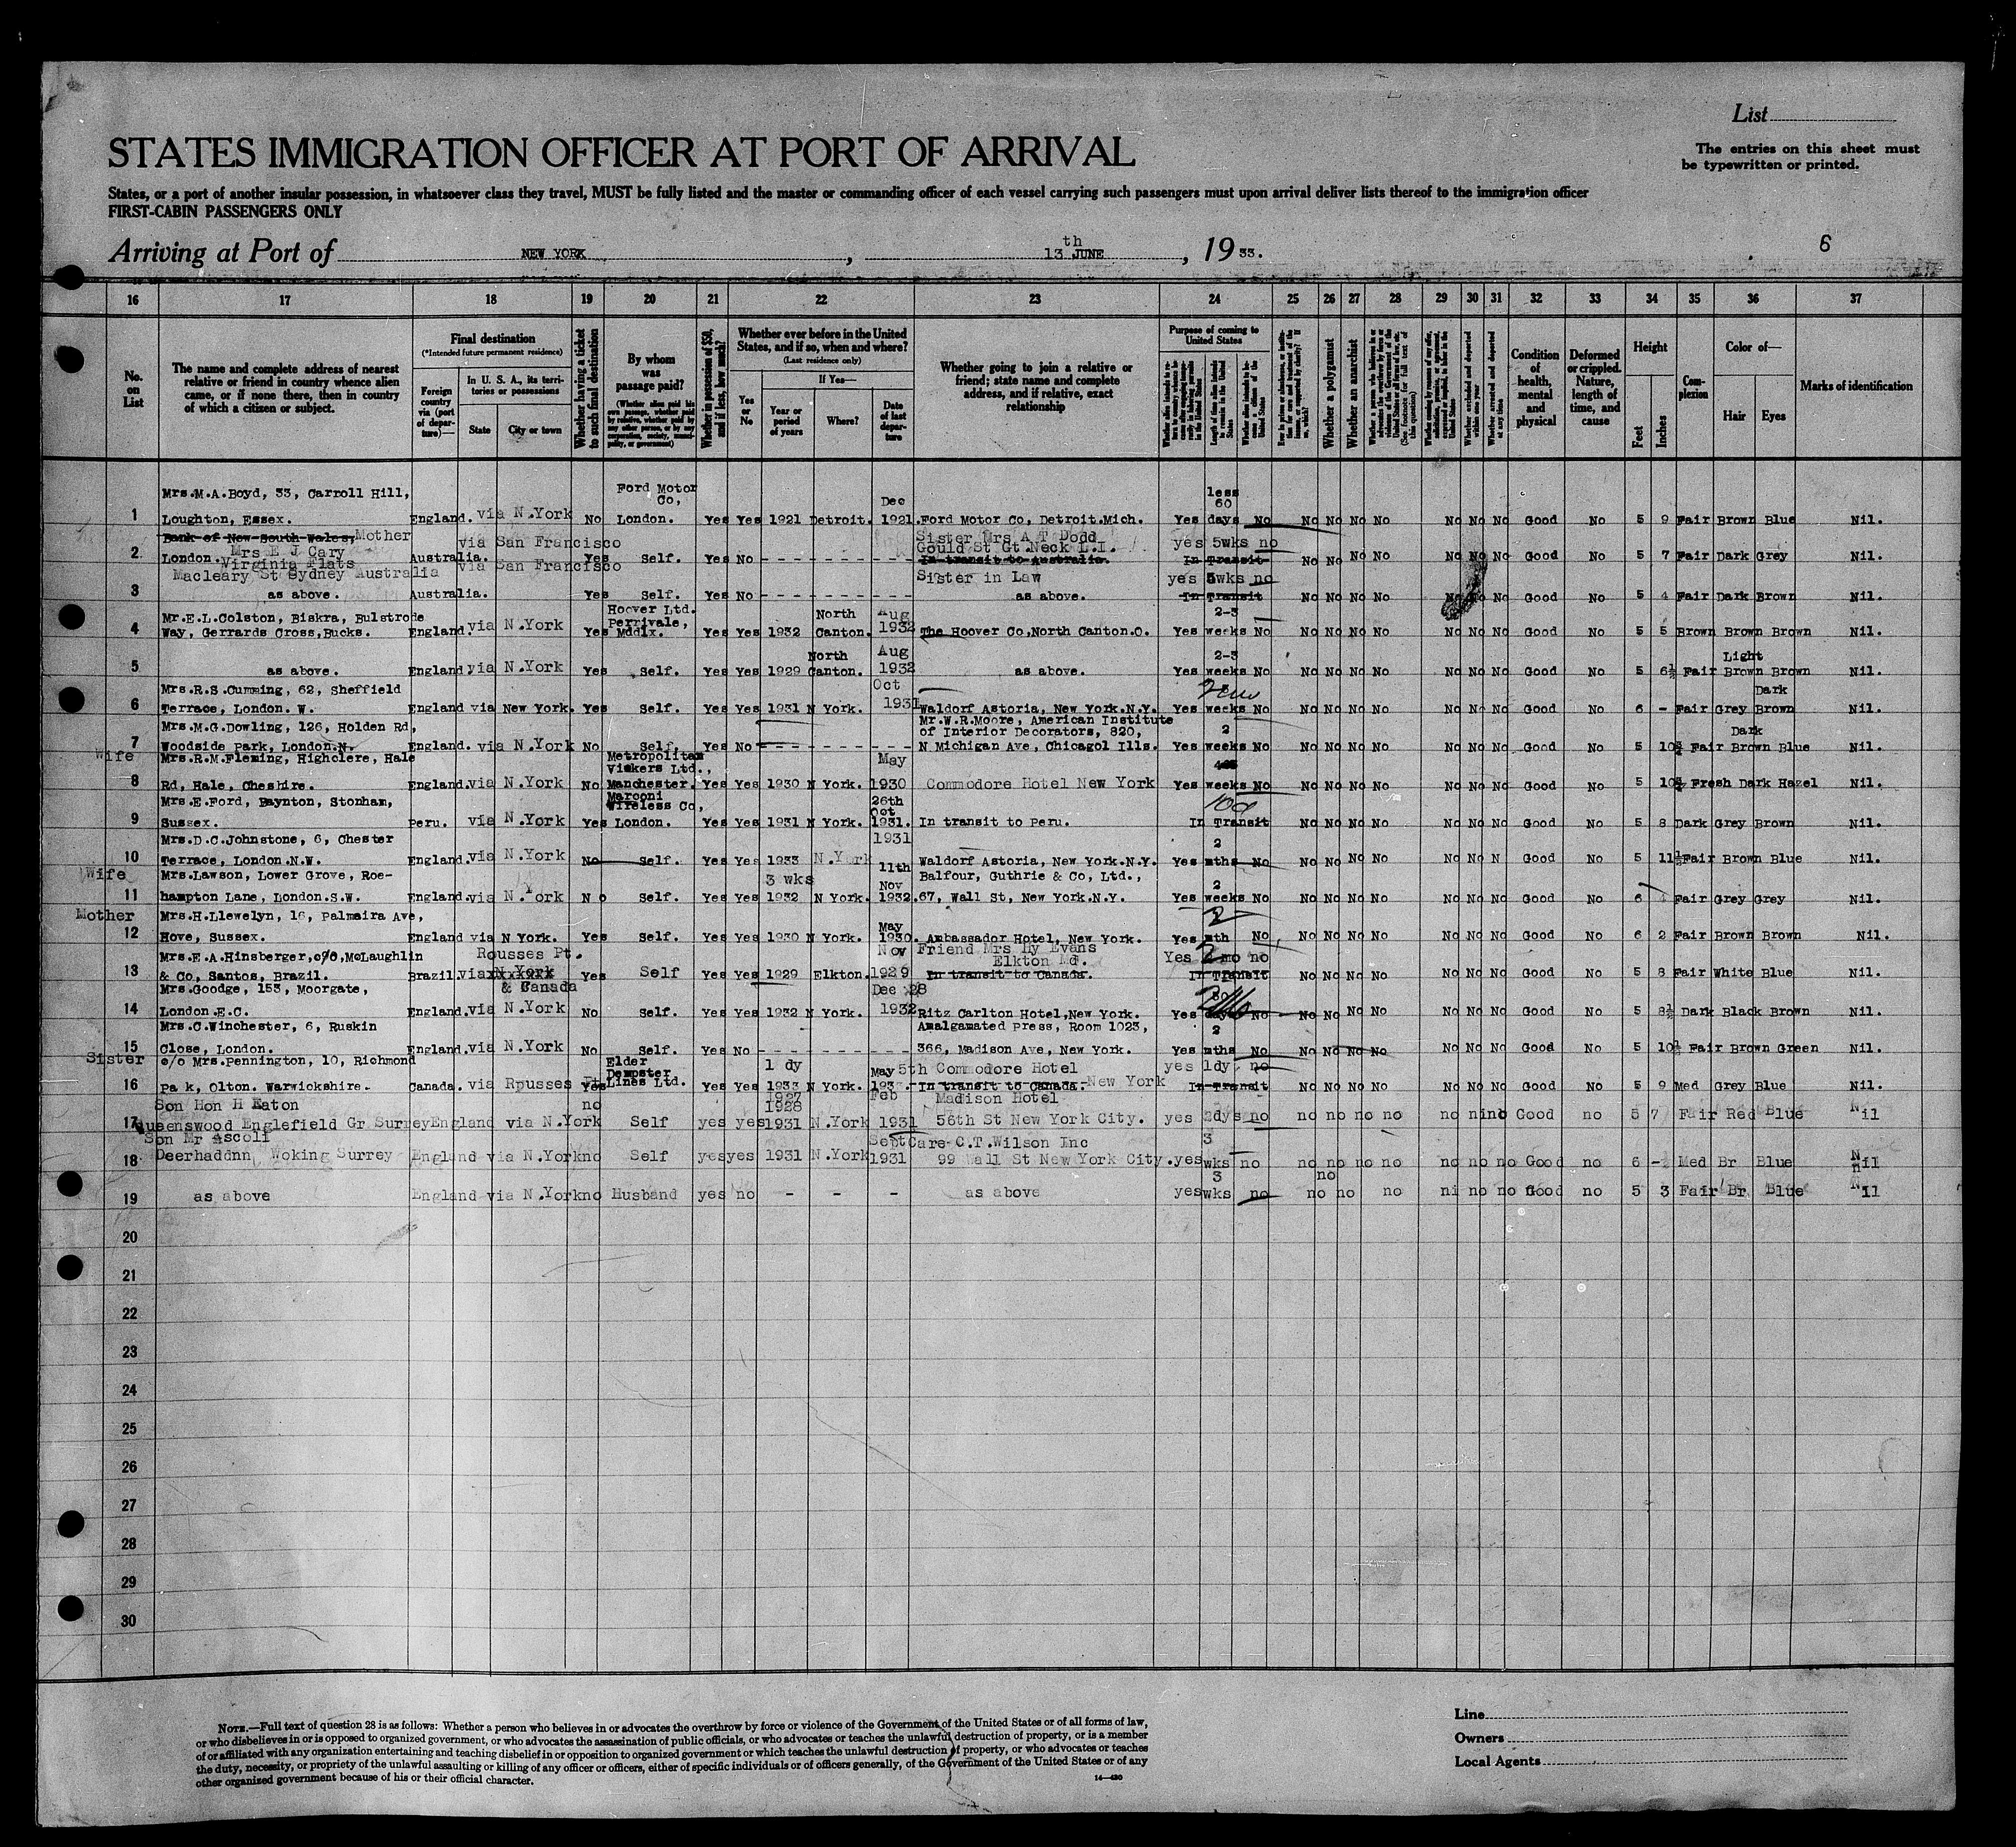 List
STATES IMMIGRATION OFFICER AT PORT OF ARRIVAL
The entries on this sheet must
be typewritten or printed.
States, or a port of another insular possession, in whatsoever class they travel, MUST be fully listed and the master or commanding officer of each vessel carrying such passengers must upon arrival deliver lists thereof to the immigration officer
FIRST-CABIN PASSENGERS ONLY
Arriving at Port of NEW YORK, 13th JUNE, 1933.
6
16 17 18 19 20 21 22 23 24 25 26 27 28 29 30 31 32 33 34 35 36 37
No. on List
The name and complete address of nearest relative or friend in country whence alien came, or if none there, then in country of which a citizen or subject.
Final destination
(*Intended future permanent residence)
Foreign country via (port of departure)—
In U. S. A., its territories or possessions
State
City or town
Whether having a ticket to such final destination
By whom was passage paid?
(Whether alien paid his own passage, whether paid by relative, whether paid by any other person, or by any corporation, society, municipality, or government)
Whether in possession of $50, and if less, how much?
Whether ever before in the United States, and if so, when and where?
(Last residence only)
Yes or No
If Yes—
Year or period of years
Where?
Date of last departure
Whether going to join a relative or friend; state name and complete address, and if relative, exact relationship
Purpose of coming to United States
Length of time alien intends to remain in the United States
Whether a polygamist
Whether an anarchist
Whether excluded and deported within one year
Whether arrested and deported at any time
Condition of health, mental and physical
Deformed or crippled. Nature, length of time, and cause
Height
Feet
Inches
Complexion
Color of—
Hair
Eyes
Marks of identification
Mrs.M.A.Boyd, 33, Carroll Hill, Ford Motor Co, Dec less 60
1 Loughton, Essex. England. via N.York No London. Yes Yes 1921 Detroit. 1921. Ford Motor Co, Detroit.Mich. Yes days No No No No No No No No Good No 5 9 Fair Brown Blue Nil.
Bank of New South Wales, Mother via San Francisco Sister Mrs A T Dodd
2 London. Mrs E J Cary Australia. Yes Self. Yes No - - - - - - - - Gould St Gt Neck L.I. yes 5wks no
In transit to Australia. In Transit No No No No No No No Good No 5 7 Fair Dark Grey Nil.
Virginia Flats via San Francisco
Macleary St Sydney Australia Sister in Law yes 5wks no
3 as above. Australia. Yes Self. Yes No - - - - - - - - as above. In Transit No No No No No No No Good No 5 4 Fair Dark Brown Nil.
Mr.E.L.Colston, Biskra, Bulstrode Hoover Ltd. Perrivale, North Aug 2-3
4 Way, Gerrards Cross,Bucks. England. via N.York Yes Mddlx. Yes Yes 1932 Canton. 1932 The Hoover Co,North Canton.O. Yes weeks No No No No No No No No Good No 5 5 Brown Brown Brown Nil.
North Aug 2-3 Light
5 as above. England. via N.York Yes Self. Yes Yes 1929 Canton. 1932 as above. Yes weeks No No No No No No No No Good No 5 6½ Fair Brown Brown Nil.
Mrs.R.S.Cumming, 62, Sheffield Oct Dark
6 Terrace, London. W. England via New York. Yes Self. Yes Yes 1931 N York. 1931 Waldorf Astoria, New York.N.Y. Yes weeks No No No No No No No No Good No 6 - Fair Grey Brown Nil.
Mrs.M.G.Dowling, 126, Holden Rd, Mr.W.R.Moore, American Institute of Interior Decorators, 820, 2 Dark
7 Woodside Park, London.N. England. via N.York No Self, Yes No - - - - - - - - N Michigan Ave, Chicago1 Ills. Yes weeks No No No No No No No No Good No 5 10½ Fair Brown Blue Nil.
Wife Mrs.R.M.Fleming, Highclere, Hale Metropolitan Vickers Ltd., May
8 Rd, Hale, Cheshire. England. via N.York No Manchester. Yes Yes 1930 N York. 1930 Commodore Hotel New York Yes weeks No No No No No No No No Good No 5 10½ Fresh Dark Hazel Nil.
Mrs.E.Ford, Baynton, Stonham, Marconi Wireless Co, 26th Oct 10d
9 Sussex. Peru. via N.York Yes London. Yes Yes 1931 N York. 1931. In transit to Peru. In Transit No No No No No No No Good No 5 8 Dark Grey Brown Nil.
Mrs.D.C.Johnstone, 6, Chester 1931 2
10 Terrace, London.N.W. England via N.York No Self. Yes Yes 1933 N.York Waldorf Astoria, New York.N.Y. Yes mths No No No No No No No N Good No 5 11½ Fair Brown Blue Nil.
Wife Mrs.Lawson, Lower Grove, Roe- 3 wks 11th Nov Balfour, Guthrie & Co, Ltd., 2
11 hampton Lane, London.S.W. England. via N.York No Self. Yes Yes 1932 N York. 1932. 67, Wall St, New York.N.Y. Yes weeks No No No No No No No No Good No 6 Fair Grey Grey Nil.
Mother Mrs.H.Llewelyn, 16, Palmaira Ave, May 2
12 Hove, Sussex. England via N York. Yes Self. Yes Yes 1930 N York. 1930. Ambassador Hotel, New York. Yes mth No No No No No No No No Good No 6 2 Fair Brown Brown Nil.
Mrs.E.A.Hinsberger,c/o,McLaughlin Rousses Pt. Nov Friend Mrs Hy Evans Elkton Md. Yes 2 mo no
13 & Co, Santos, Brazil. Brazil. via N York Yes Self Yes Yes 1929 Elkton. 1929 In transit to Canada. In Transit No No No No No No No Good No 5 8 Fair White Blue Nil.
Mrs.Goodge, 153, Moorgate, & Canada Dec 28 30
14 London.E.C. England. via N.York No Self. Yes Yes 1932 N York. 1932 Ritz Carlton Hotel,New York. Yes days No No No No No No No No Good No 5 8½ Dark Black Brown Nil.
Mrs.C.Winchester, 6, Ruskin Amalgamated Press, Room 1023, 2
15 Close, London. England. via N.York No Self. Yes No - - - - - - - - 366, Madison Ave, New York. Yes mths No No No No No No No No Good No 5 10½ Fair Brown Green Nil.
Sister c/o Mrs.Pennington, 10, Richmond Elder Dempster 1 dy May 5th Commodore Hotel yes 1dy no
16 Pa k, Olton. Warwickshire. Canada. via Rousses Pt Yes Lines Ltd. Yes Yes 1933 N York. 193 In transit to Canada. New York In Transit No No No No No No No Good No 5 9 Med Grey Blue Nil.
Son Hon H Eaton no 1927 1928 Feb Madison Hotel
17 Queenswood Englefield Gr Surrey England via N.York Self yes yes 1931 N.York 1931 56th St New York City. yes 2dys no no no no no no nino Good no 5 7 Fair Red Blue Nil
Son Mr Ascoli Sept Care C.T.Wilson Inc 3
18 Deerhaddnn, Woking Surrey England via N.York no Self yes yes 1931 N.York 1931 99 Wall St New York City. yes wks no no no no no no no no Good no 6 - Med Br Blue Nil
3 no
19 as above England via N.York no Husband yes no - - - as above yes wks no no no no ni no no Good no 5 3 Fair Br Blue Nil
20
21
22
23
24
25
26
27
28
29
30
NOTE.—Full text of question 28 is as follows: Whether a person who believes in or advocates the overthrow by force or violence of the Government of the United States or of all forms of law,
or who disbelieves in or is opposed to organized government, or who advocates the assassination of public officials, or who advocates or teaches the unlawful destruction of property, or is a member
of or affiliated with any organization entertaining and teaching disbelief in or opposition to organized government or which teaches the unlawful destruction of property, or who advocates or teaches
the duty, necessity, or propriety of the unlawful assaulting or killing of any officer or officers, either of specific individuals or of officers generally, of the Government of the United States or of any
other organized government because of his or their official character.
14—430
Line
Owners
Local Agents